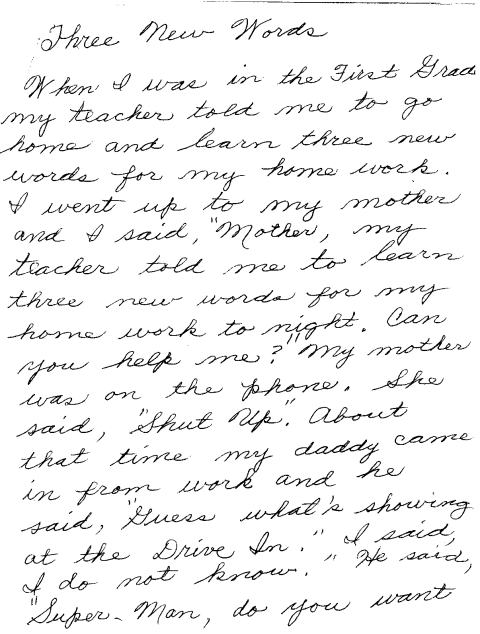 Three New Words
When I was in the First Grad
my teacher told me to go
home and learn three new
words for my home work.
I went up to my mother
and I said, "Mother, my
teacher told me to learn
three new words for my
home work to night. Can
you help me?" My mother
was on the phone. She
said, "Shut Up". About
that time my daddy came
in from work and he
said, "Guess what's showing
at the Drive In." I said,
I do not know." He said,
"Super-Man, do you want